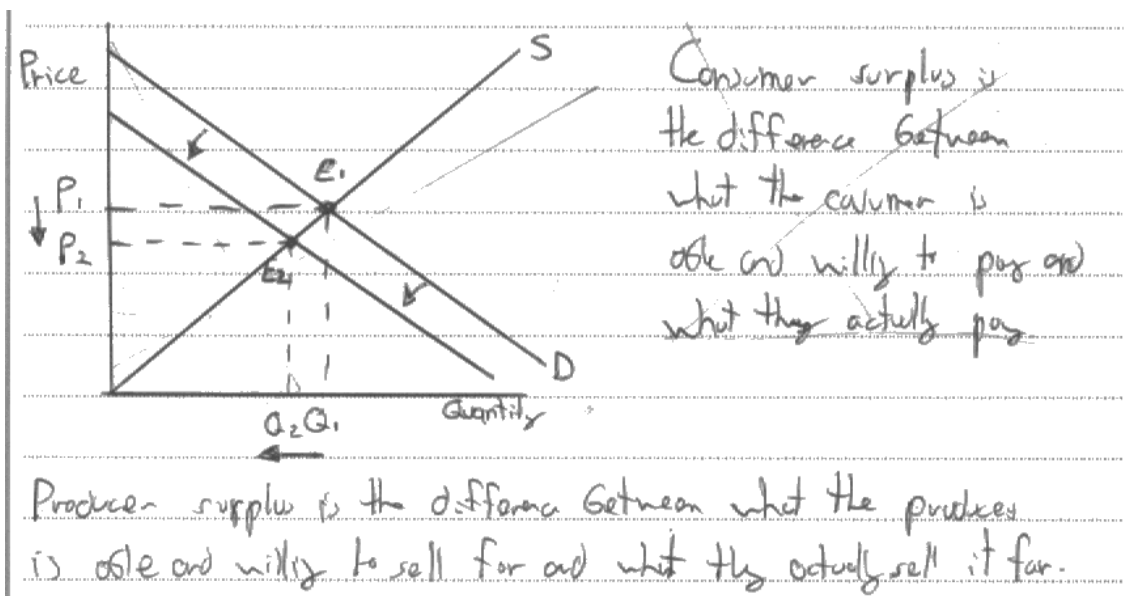 Price
S
E₁
P₁
P₂
E₂
D
Q₂ Q₁
Quantity
Consumer surplus is
the difference between
what the consumer is
able and willing to pay and
what they actually pay
Producer surplus is the difference between what the produces
is able and willing to sell for and what they actually sell it for.